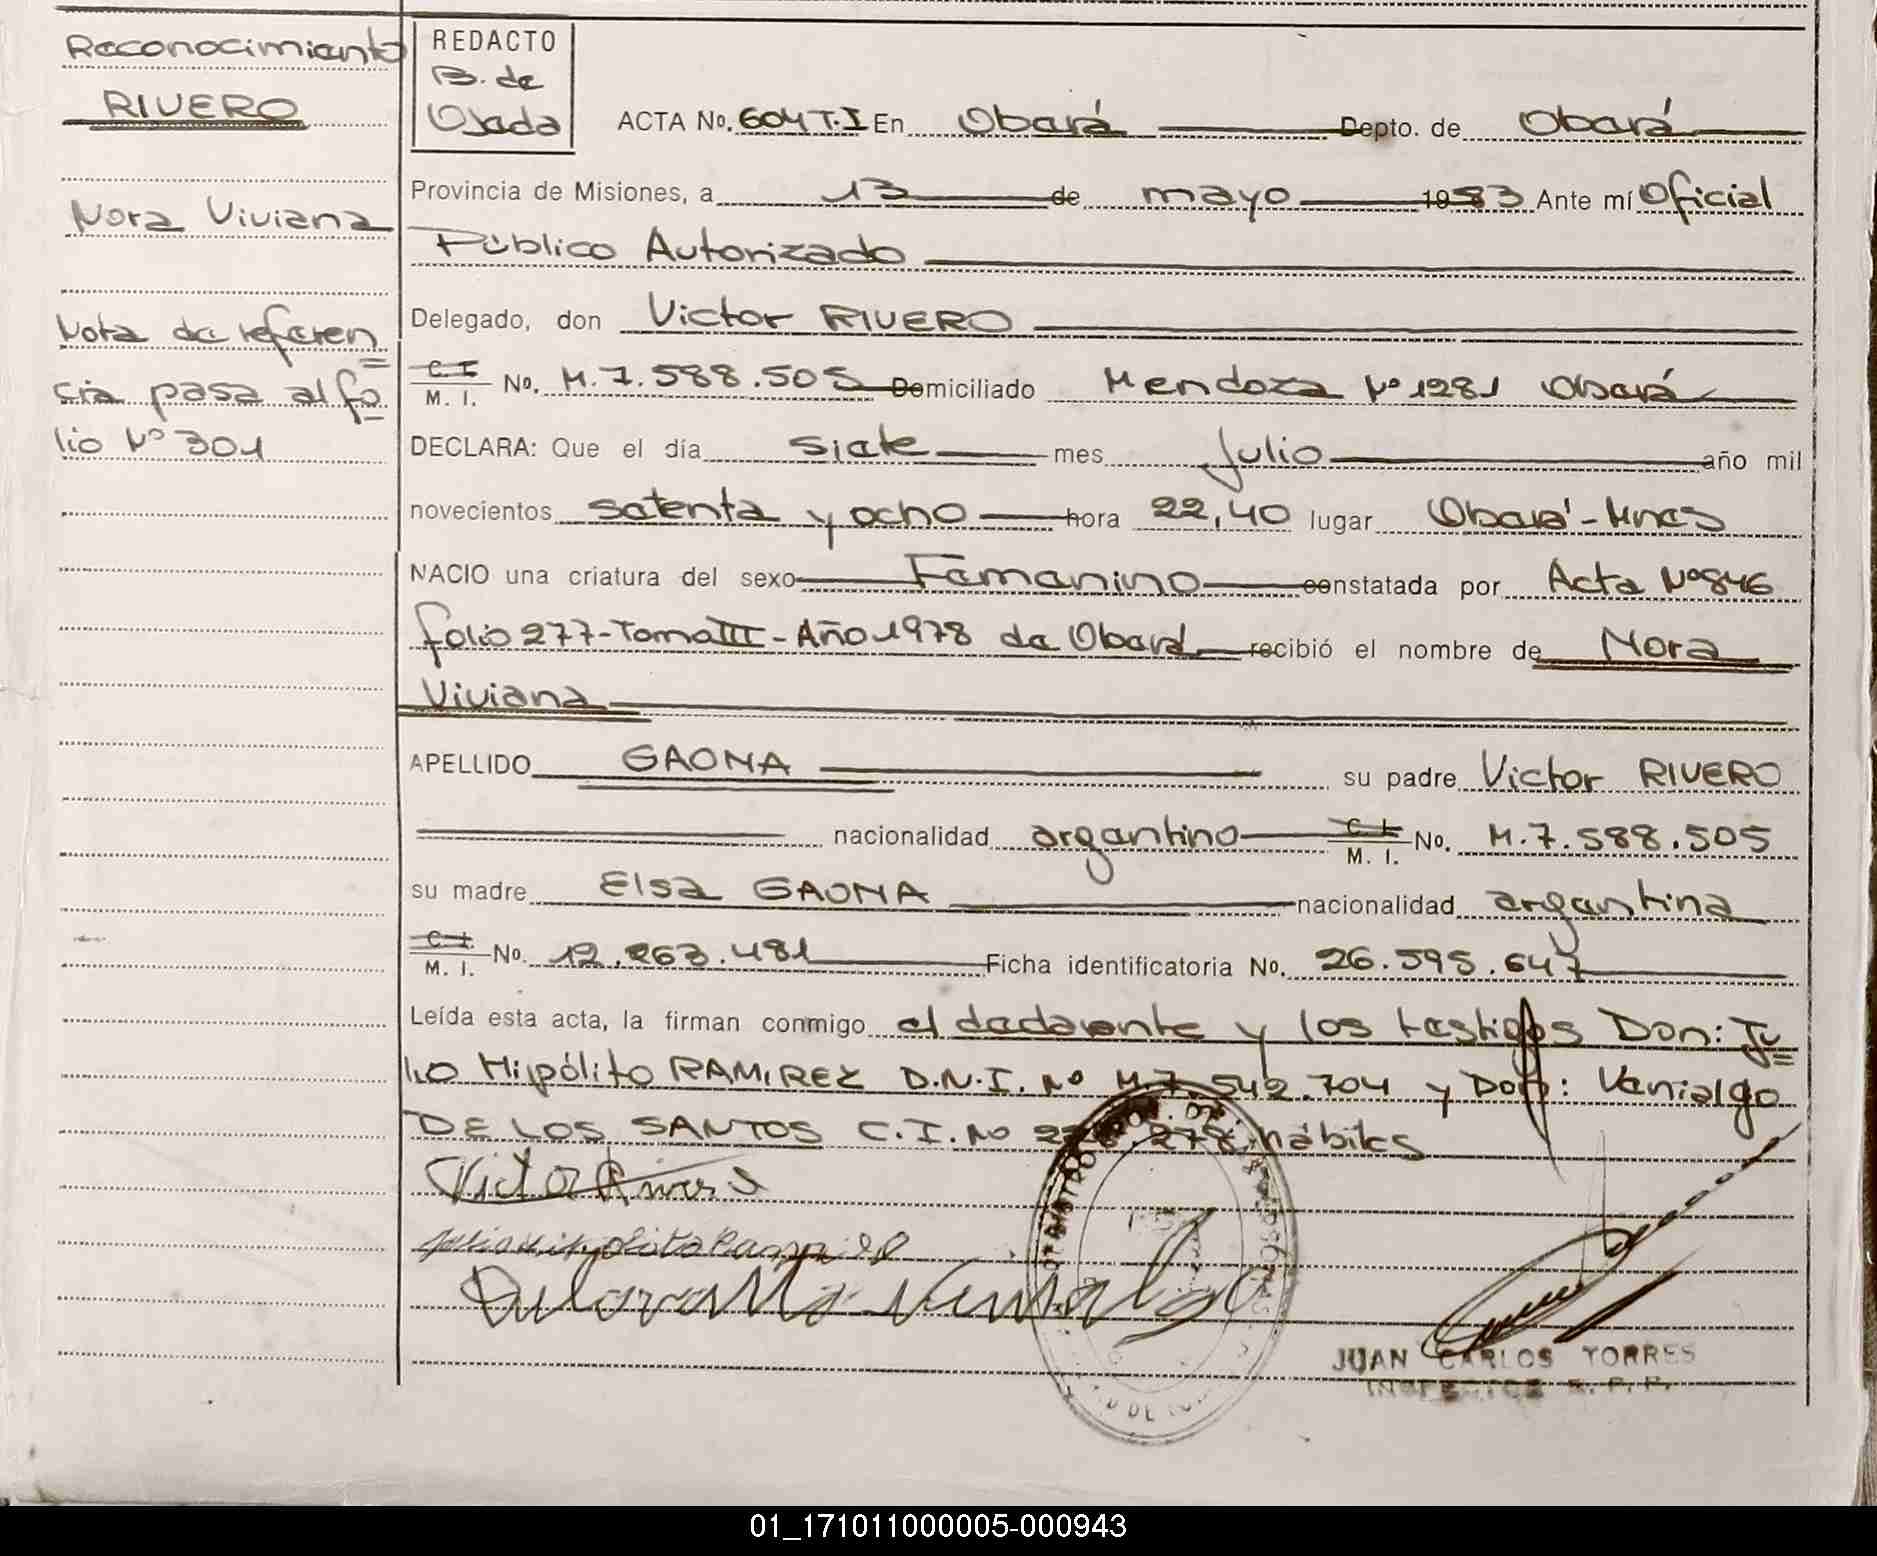 Reconocimiento
RIVERO
Nora Viviana
Nota de referen
cia pasa al fo
lio Nº 301
REDACTO
B. de
Ojeda
ACTA No. 604 T.I En Oberá Depto. de Oberá
Provincia de Misiones, a 13 de mayo 1983 Ante mí Oficial
Público Autorizado
Delegado, don Victor RIVERO
C. I. M. I. No. M.7.588.505 Domiciliado Mendoza Nº 1281 Oberá
DECLARA: Que el día siete mes Julio año mil
novecientos setenta y ocho hora 22,40 lugar Oberá-Mnes
NACIO una criatura del sexo Femenino constatada por Acta Nº 846
folio 277-Tomo III-Año 1978 de Oberá recibió el nombre de Nora
Viviana
APELLIDO GAONA su padre Victor RIVERO
nacionalidad argentino C. I. M. I. No. M.7.588.505
su madre Elsa GAONA nacionalidad argentina
C. I. M. I. No. 12.263.481 Ficha identificatoria No. 26.595.647
Leída esta acta, la firman conmigo el declarante y los testigos Don: Ju
lio Hipólito RAMIREZ D.N.I. Nº M.7.542.704 y Don: Venialgo
DE LOS SANTOS C.I. Nº 278 hábiles
Victor Rivero
Julio Hipolito Ramirez
Venialgo
JUAN CARLOS TORRES
INSPECTOR R. P. P.
01_171011000005-000943